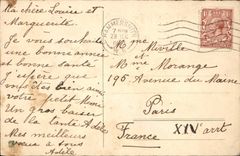 Ma chère Louise et
Marguerite.
Je vous souhaite
une bonne année
et bonne santé
J'espère que
vous êtes bien ainsi
votre petit
Un gros baiser
de la tante Adèle
Mes meilleurs
vœux à tous
Adèle
HAMMERSMITH
Mme Miville
et
Mme Morange
196 Avenue du Maine
Paris
France
XIV arrt